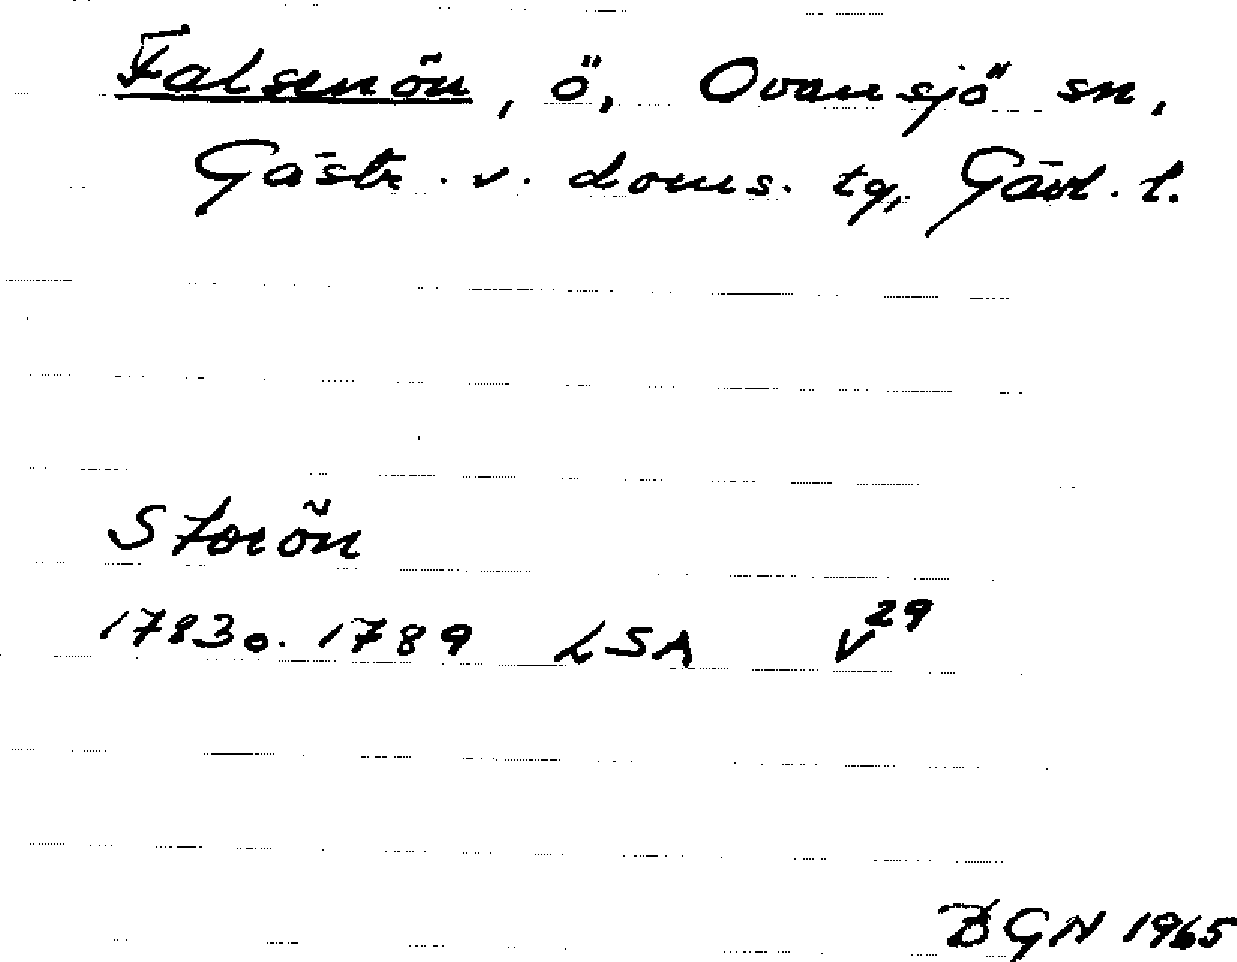 Falsenön, ö, Ovansjö sn,
Gästr. v. doms. tg, Gävl. l.
Storön
1783 o. 1789 LSA V 29
BGN 1965